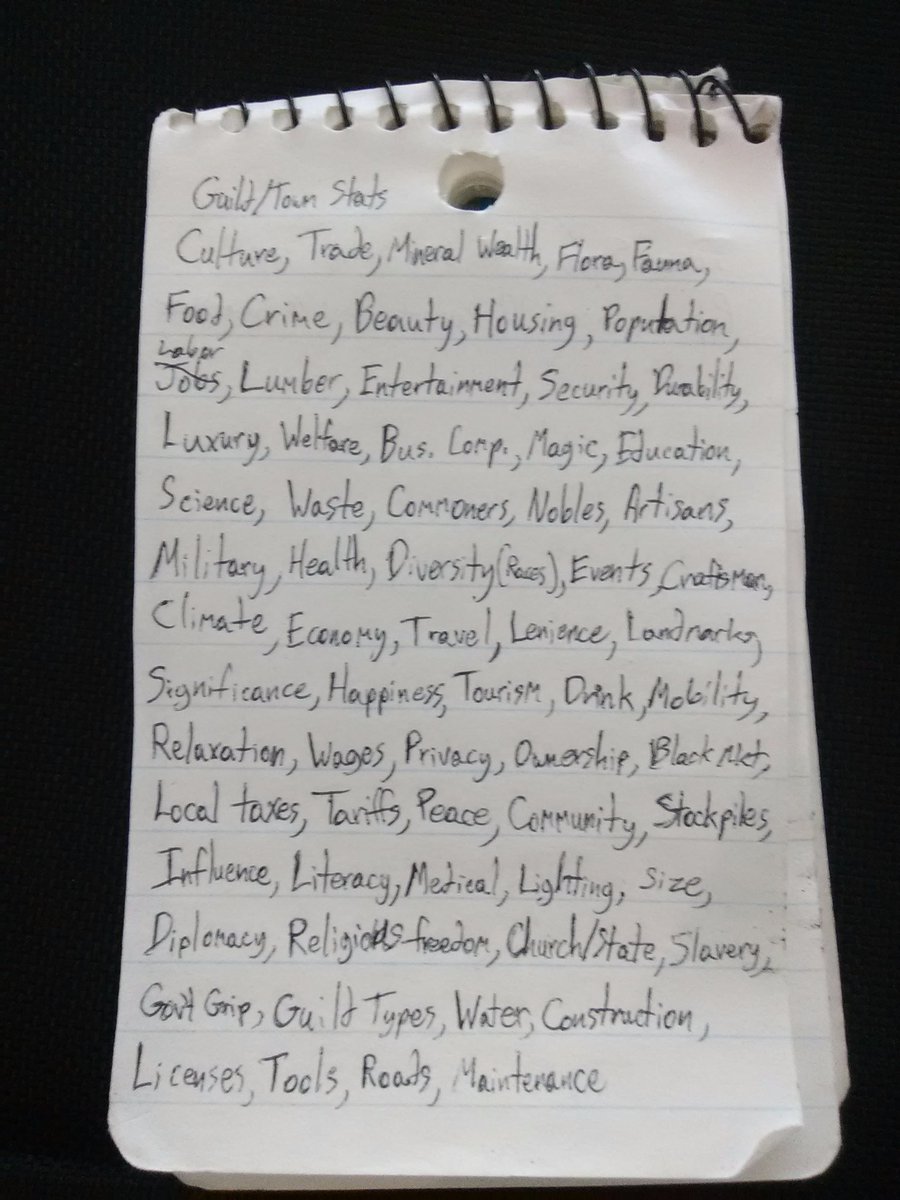 Guild/Town Stats
Culture, Trade, Mineral Wealth, Flora, Fauna,
Food, Crime, Beauty, Housing, Population,
Labor
Jobs, Lumber, Entertainment, Security, Durability,
Luxury, Welfare, Bus. Comp., Magic, Education,
Science, Waste, Commoners, Nobles, Artisans,
Military, Health, Diversity(Races), Events, Craftsmen,
Climate, Economy, Travel, Lenience, Landmarks,
Significance, Happiness, Tourism, Drink, Mobility,
Relaxation, Wages, Privacy, Ownership, Black Mkt,
Local taxes, Tariffs, Peace, Community, Stockpiles,
Influence, Literacy, Medical, Lighting, Size,
Diplomacy, Religious freedom, Church/State, Slavery,
Gov't Grip, Guild Types, Water, Construction,
Licenses, Tools, Roads, Maintenance